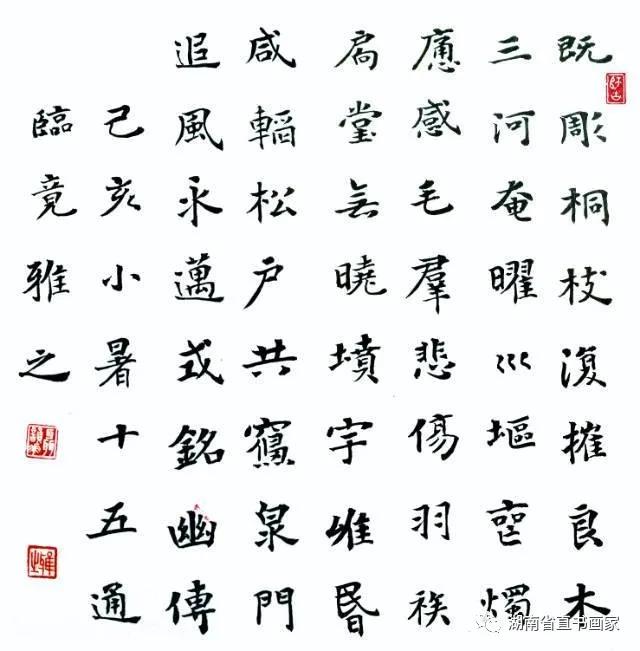 既彫桐枝復摧良木
三河奄曜巛塸喪燭
感毛羣悲傷羽族
扃堂無曉墳宇唯昏
咸轁松戶共寢泉門
追風永邁式銘幽傳
己亥小暑十五通
臨竟雅之
好古
雅之
湖南省直书画家